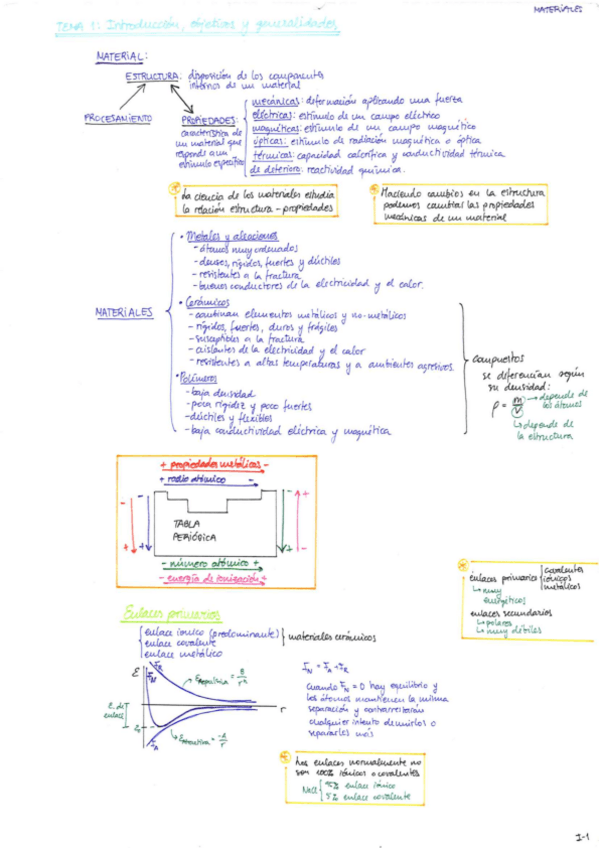 MATERIALES
TEMA 1: Introducción, objetivos y generalidades
MATERIAL:
ESTRUCTURA: disposición de los componentes
internos de un material
PROCESAMIENTO
PROPIEDADES:
característica de
un material que
responde a un
estímulo específico
mecánicas: deformación aplicando una fuerza
eléctricas: estímulo de un campo eléctrico
magnéticas: estímulo de un campo magnético
ópticas: estímulo de radiación magnética o óptica
térmicas: capacidad calorífica y conductividad térmica
de deterioro: reactividad química.
La ciencia de los materiales estudia
la relación estructura - propiedades
Haciendo cambios en la estructura
podemos cambiar las propiedades
mecánicas de un material
MATERIALES
• Metales y aleaciones
- átomos muy ordenados
- densos, rígidos, fuertes y dúctiles
- resistentes a la fractura
- buenos conductores de la electricidad y el calor.
• Cerámicos
- combinan elementos metálicos y no-metálicos
- rígidos, fuertes, duros y frágiles
- susceptibles a la fractura
- aislantes de la electricidad y el calor
- resistentes a altas temperaturas y a ambientes agresivos.
• Polímeros
- baja densidad
- poca rigidez y poco fuertes
- dúctiles y flexibles
- baja conductividad eléctrica y magnética
compuestos
se diferencian según
su densidad:
ρ = m/V
→ depende de
los átomos
↳ depende de
la estructura
+ propiedades metálicas -
+ radio atómico -
- + - + - + - +
TABLA
PERIÓDICA
- número atómico +
- energía de ionización +
enlaces primarios
covalentes
iónicos
metálicos
↳ muy
energéticos
enlaces secundarios
↳ polares
↳ muy débiles
Enlaces primarios
enlace iónico (predominante)
enlace covalente
materiales cerámicos
enlace metálico
E
F_R
F_N
E_repulsiva = B/r^n
E. de
enlace
E₀
r
F_A
E_atractiva = -A/r
F_N = F_A + F_R
cuando F_N = 0 hay equilibrio y
los átomos mantienen la misma
separación y contrarrestarán
cualquier intento de unirlos o
separarlos más
Los enlaces normalmente no
son 100% iónicos o covalentes
NaCl
95% enlace iónico
5% enlace covalente
I-1